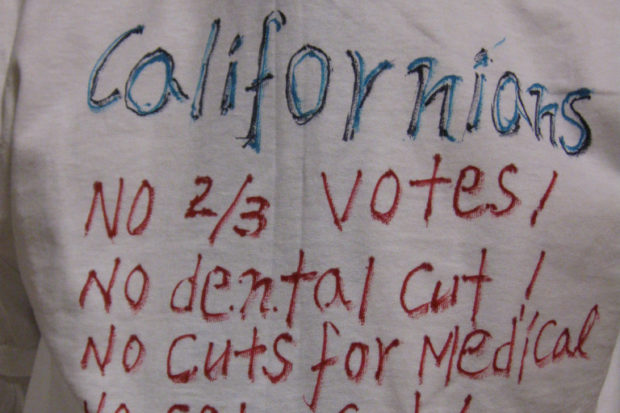 Californians
NO 2/3 votes!
NO dental cut!
NO cuts for Medical